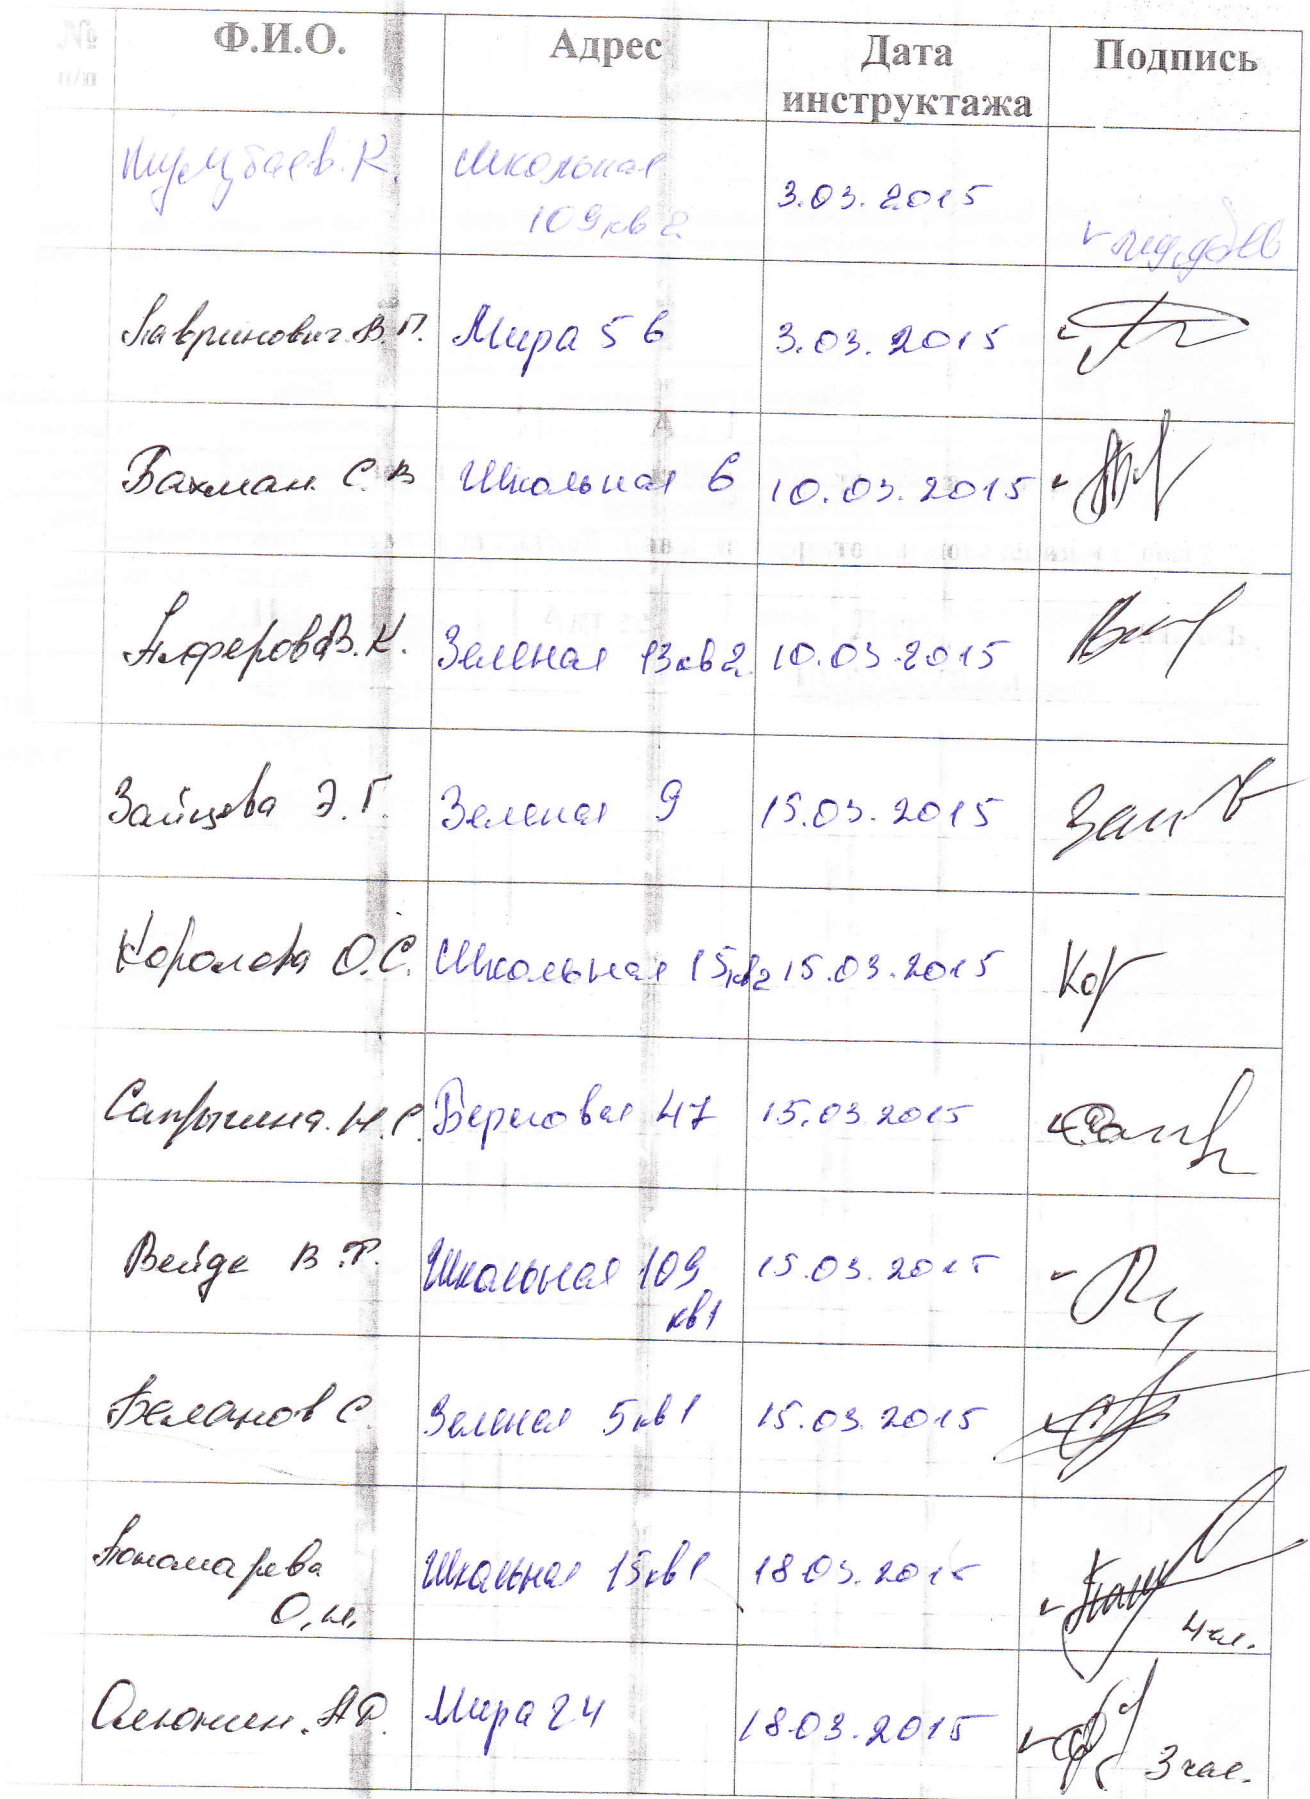 № Ф.И.О. Адрес Дата Подпись
п/п инструктажа
Школьная
109 кв 2 3.03.2015
Лавринович В.П. Мира 5 6 3.03.2015
Бахман С. В Школьная 6 10.03.2015
Алферова В.К. Зеленая 13 кв 2 10.03.2015
Зайцева Э.Г. Зеленая 9 15.03.2015
Королева О.С. Школьная 15 кв2 15.03.2015 Кор
Сапрыкина Н.С. Береговая 47 15.03.2015
Вейде В.Р. Школьная 109 15.03.2015
кв 1
Беланов С. Зеленая 5 кв 1 15.03.2015
Пономарева Школьная 15 кв 1 18.03.2015
О.Н. 4 кл.
Мира 24 18.03.2015